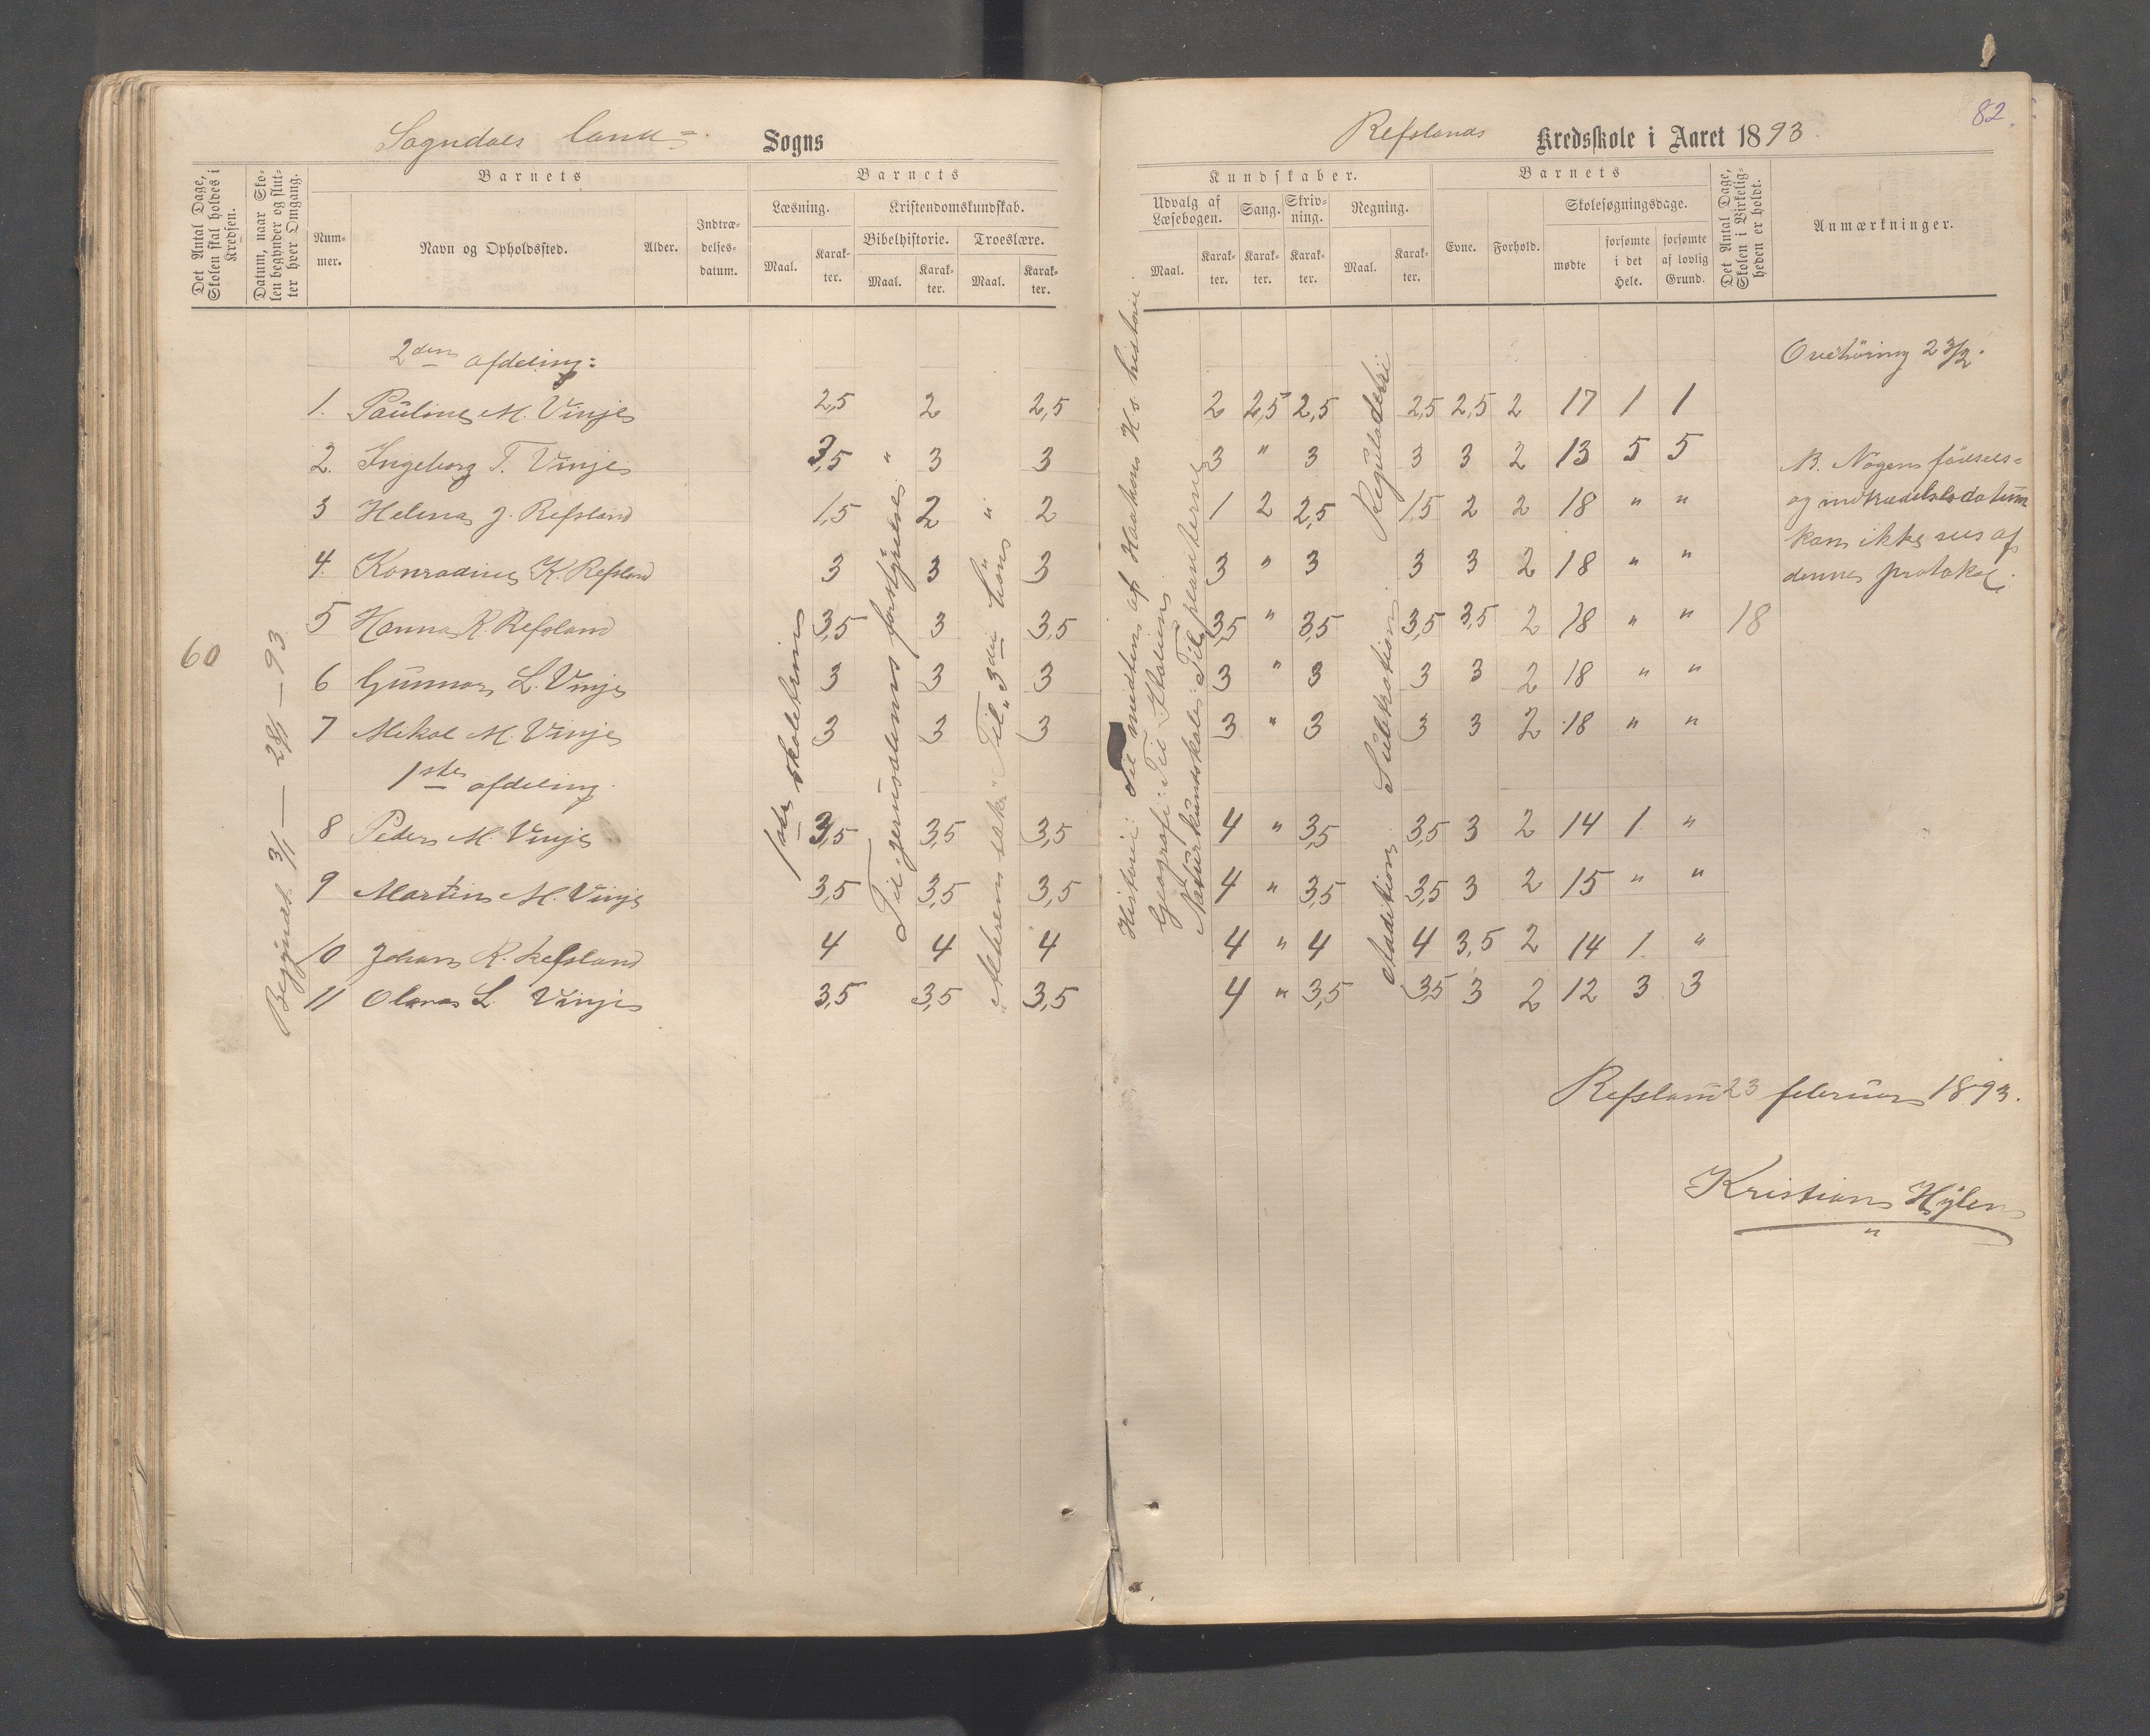 82.
Sogndals land= Sogns
Refslands Kredsskole i Aaret 1893.
Det Antal Dage, Skolen skal holdes i Kredsen.
Datum, naar Skolen begynder og slutter hver Omgang.
Barnets
Nummer.
Navn og Opholdssted.
Alder.
Indtrædelsesdatum.
Barnets
Læsning.
Maal.
Karakter.
Kristendomskundskab.
Bibelhistorie.
Maal.
Karakter.
Troeslære.
Maal.
Karakter.
Kundskaber.
Udvalg af Læsebogen.
Maal.
Karakter.
Sang.
Karakter.
Skrivning.
Karakter.
Regning.
Maal.
Karakter.
Barnets
Evne.
Forhold.
Skolesøgningsdage.
mødte
forsømte i det Hele.
forsømte af lovlig Grund.
Det Antal Dage, Skolen i Virkeligheden er holdt.
Anmærkninger.
2den afdeling:
1. Pauline M. Vinje 2,5 2 2,5 2 2,5 2,5 2,5 2,5 2 17 1 1
2. Ingeborg T. Vinje 3,5 " 3 3 3 " 3 3 3 2 13 5 5
3 Helena J. Refsland 1,5 2 " 2 1 2 2,5 1,5 2 2 18 " "
4. Konradine K. Refsland 3 3 3 3 " 3 3 3 2 18 " "
5 Hanna R. Refsland 3,5 3 3,5 3,5 " 3,5 3,5 3,5 2 18 " " 18
6 Gunnar L. Vinje 3 3 3 3 " 3 3 3 2 18 " "
7 Mikal M. Vinje 3 3 3 3 " 3 3 3 2 18 " "
1ste afdeling.
8 Peder M. Vinje 3,5 3,5 3,5 4 " 3,5 3,5 3 2 14 1 "
9 Martin M. Vinje 3,5 3,5 3,5 4 " 3,5 3,5 3 2 15 " "
10 Johan R. Refsland 4 4 4 4 " 4 4 3,5 2 14 1. "
11 Olena L. Vinje 3,5 3,5 3,5 4 " 3,5 3,5 3 2 12 3 3
60
Begyndt 3/1 — 28/1 — 93
1ste skoletrin
Til Jerusalems forstyrrelse
"Alterens sak." Til "3die bøn"
Historie: Til midten af Haakons H.s historie
Geografi: Til Italien.
Naturkundskab: Til planterne
Addition. Subtraktion. Reguladetri
Overhöring 23/2.
NB. Nogen födsels=
og indtrædelsesdatum
kan ikke sees af
denne protokol.
Refsland 23 februar 1893.
Kristian Hylen
"